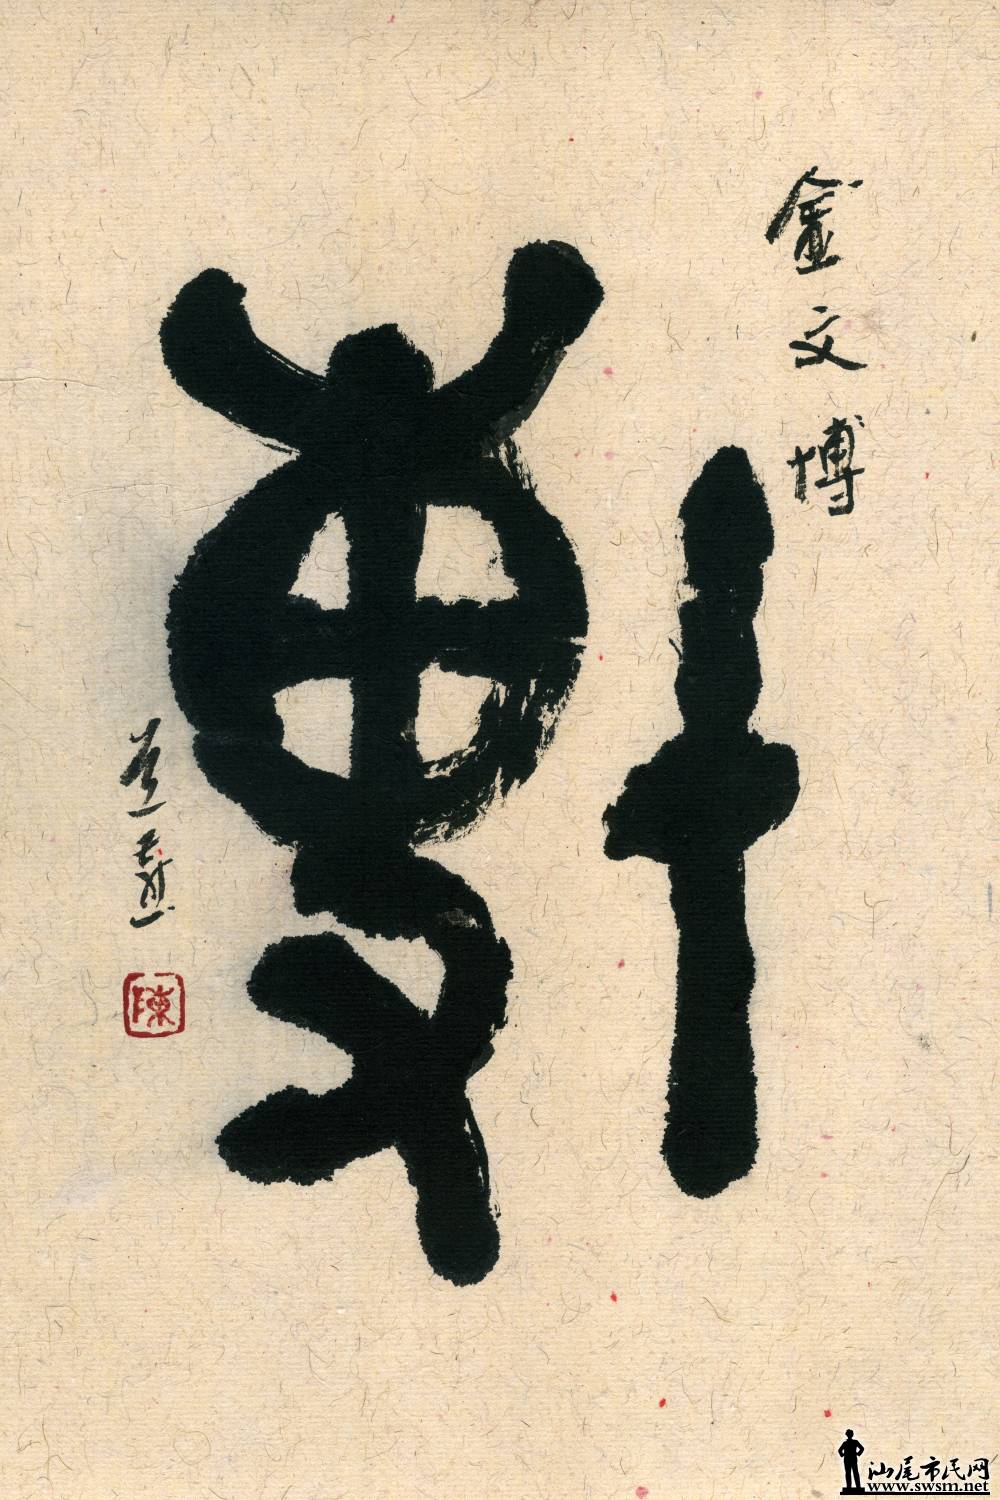 金文博
博
陳
汕尾市民网
www.swsm.net